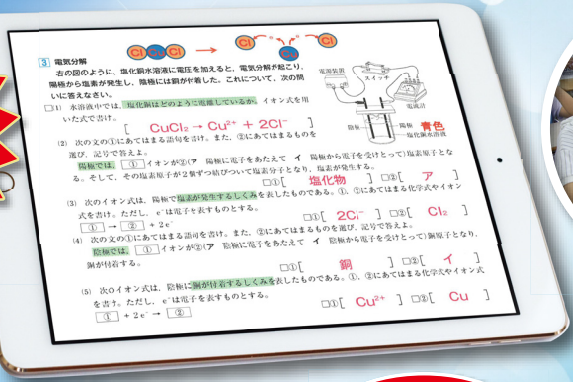 Cl Cu Cl → Cl Cu Cl
3 電気分解
右の図のように，塩化銅水溶液に電圧を加えると，電気分解が起こり，
陽極から塩素が発生し，陰極には銅が付着した。これについて，次の問
いに答えなさい。
電源装置
スイッチ
電流計
陰極
陽極
青色
塩化銅水溶液
□(1) 水溶液中では，塩化銅はどのように電離しているか。イオン式を用
いた式で書け。
[ CuCl₂ → Cu²⁺ + 2Cl⁻ ]
(2) 次の文の①にあてはまる語句を書け。また，②にあてはまるものを
選び，記号で答えよ。
陽極では， ① イオンが②(ア 陽極に電子をあたえて イ 陽極から電子を受けとって)塩素原子とな
る。そして，その塩素原子が2個ずつ結びついて塩素分子となり，塩素が発生する。
□①[ 塩化物 ] □②[ ア ]
(3) 次のイオン式は，陽極で塩素が発生するしくみを表したものである。①，②にあてはまる化学式やイオン
式を書け。ただし，e⁻は電子を表すものとする。
① → ② + 2e⁻
□①[ 2Cl⁻ ] □②[ Cl₂ ]
(4) 次の文の①にあてはまる語句を書け。また，②にあてはまるものを選び，記号で答えよ。
陰極では， ① イオンが②(ア 陰極に電子をあたえて イ 陰極から電子を受けとって)銅原子となり，
銅が付着する。
□①[ 銅 ] □②[ イ ]
(5) 次のイオン式は，陰極に銅が付着するしくみを表したものである。①，②にあてはまる化学式やイオン式
を書け。ただし，e⁻は電子を表すものとする。
① + 2e⁻ → ②
□①[ Cu²⁺ ] □②[ Cu ]